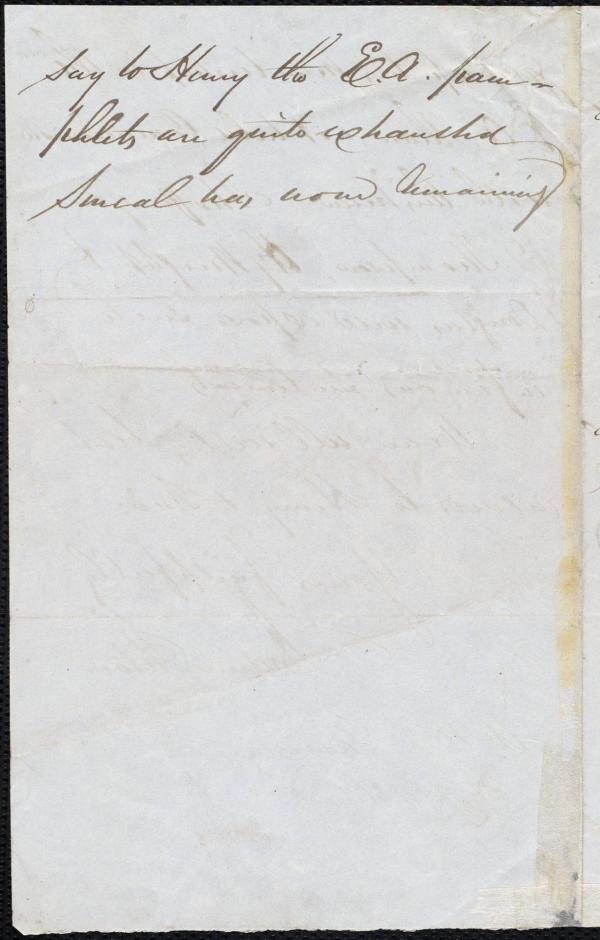 say to Henry the E.A. pam-
phlets are quite exhausted
Smeal has none remaining